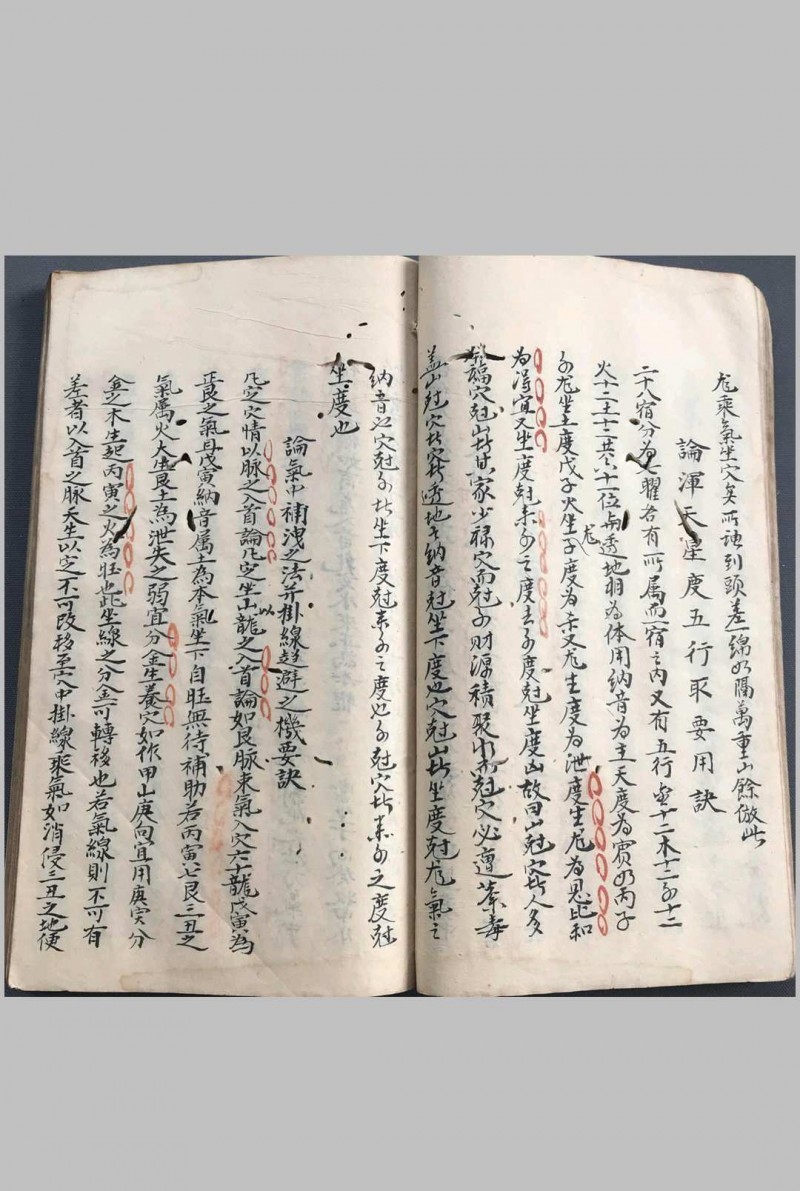 龙乘氣坐穴矣所謂到頭差一線如隔萬重山餘倣此
論渾天星度五行取要用訣
二十八宿分為七曜各有所属而一宿之内又有五行金十二木十二水十二
火十二土十三共六十一位與透地相為体用納音為主天度為賓如丙子
水龙坐土度戊子火龙坐水度為杀又龙生度為泄度生龙為恩比和
為得宜又坐度尅来水之度去水度尅坐度凶故曰山尅穴其人多
發福穴尅山其家少禄穴而尅水財源積聚水而尅穴必遭
盖山尅穴者穴透地之納音尅坐下度也穴尅山者坐度尅龙氣之
納音也穴尅水者坐下度尅来水之度也水尅穴者来水之度尅
坐度也
論氣中補洩之法并掛線趋避之機要訣
凡定穴情以脉之入首論凡定坐山以龍之入首論如艮脉来氣入穴六十龍戊寅為
正艮之氣且戊寅納音属土為本氣坐下自旺無待補助若丙寅七艮三丑之
氣属火火生艮土為泄失之弱宜分金生養穴如作甲山庚向宜用庚寅分
金之木生起丙寅之火為旺也此坐線之分金可轉移也若氣線則不可有
差者以入首之脉天生以定不可改移至穴中掛線乘氣如消侵三丑之地便